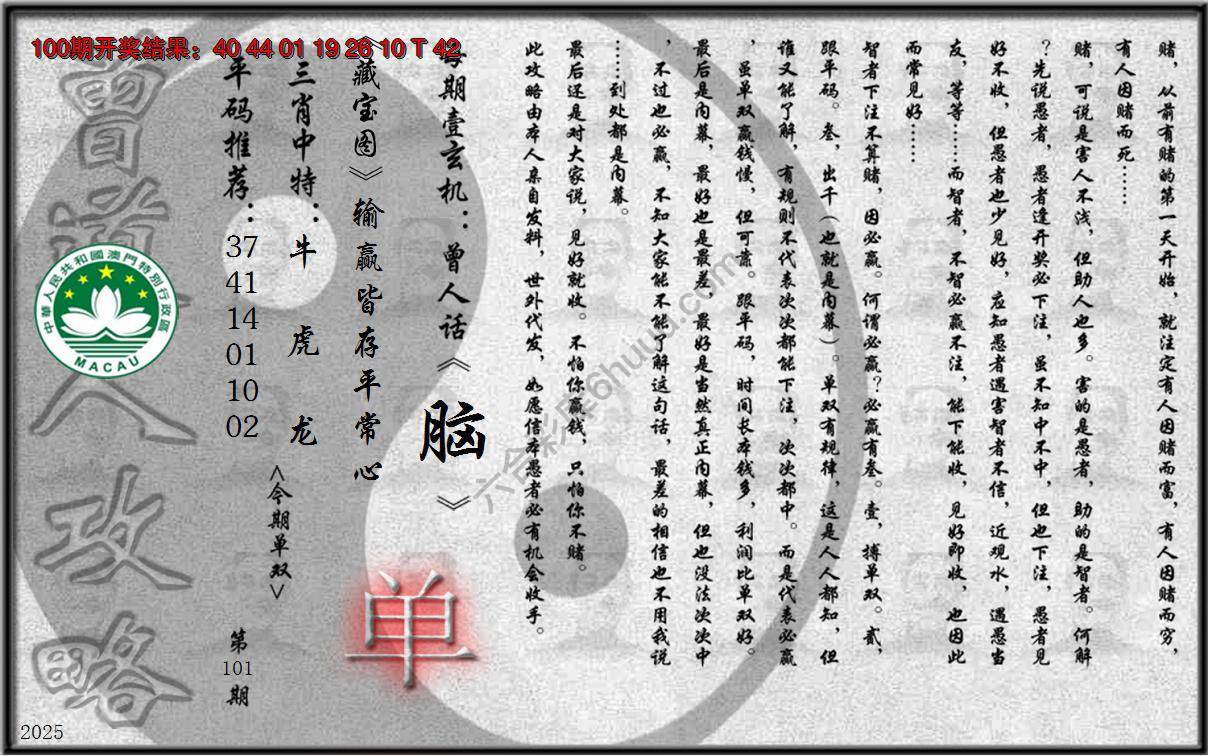 100期开奖结果：40 44 01 19 26 10 T 42
赌，从前有赌的第一天开始，就注定有人因赌而富，有人因赌而穷，
有人因赌而死……
赌，可说是害人不浅，但助人也多。害的是愚者，助的是智者。何解
？先说愚者，愚者逢开奖必下注，虽不知中不中，但也下注，愚者见
好不收，但愚者也少见好，应知愚者遇害智者不信，近观水，遇愚当
友，等等……而智者，不智必赢不注，能下能收，见好即收，也因此
而常见好……
智者下注不算赌，因必赢。何谓必赢？必赢有叁。壹，搏单双。贰，
跟平码。叁，出千（也就是内幕）。单双有规律，这是人人都知，但
谁又能了解，有规则不代表次次都能下注，次次都中。而是代表必赢
，虽单双赢钱慢，但可靠。跟平码，时间长本钱多，利润比单双好。
最后是内幕，最好也是最差，最好是当然真正内幕，但也没法次次中
，不过也必赢，不知大家能不能了解这句话，最差的相信也不用我说
……到处都是内幕。
最后还是对大家说，见好就收。不怕你赢钱，只怕你不赌。
此攻略由本人亲自发料，世外代发，如愿信本愚者必有机会收手。
每期壹玄机：曾人话《脑》
《藏宝图》输赢皆存平常心
三肖中特：牛 虎 龙
平码推荐：
37
41
14
01
10
02
<今期单双>
单
第
101
期
曾道人攻略
中華人民共和國澳門特別行政區
MACAU
六合彩库6huuu.com
2025